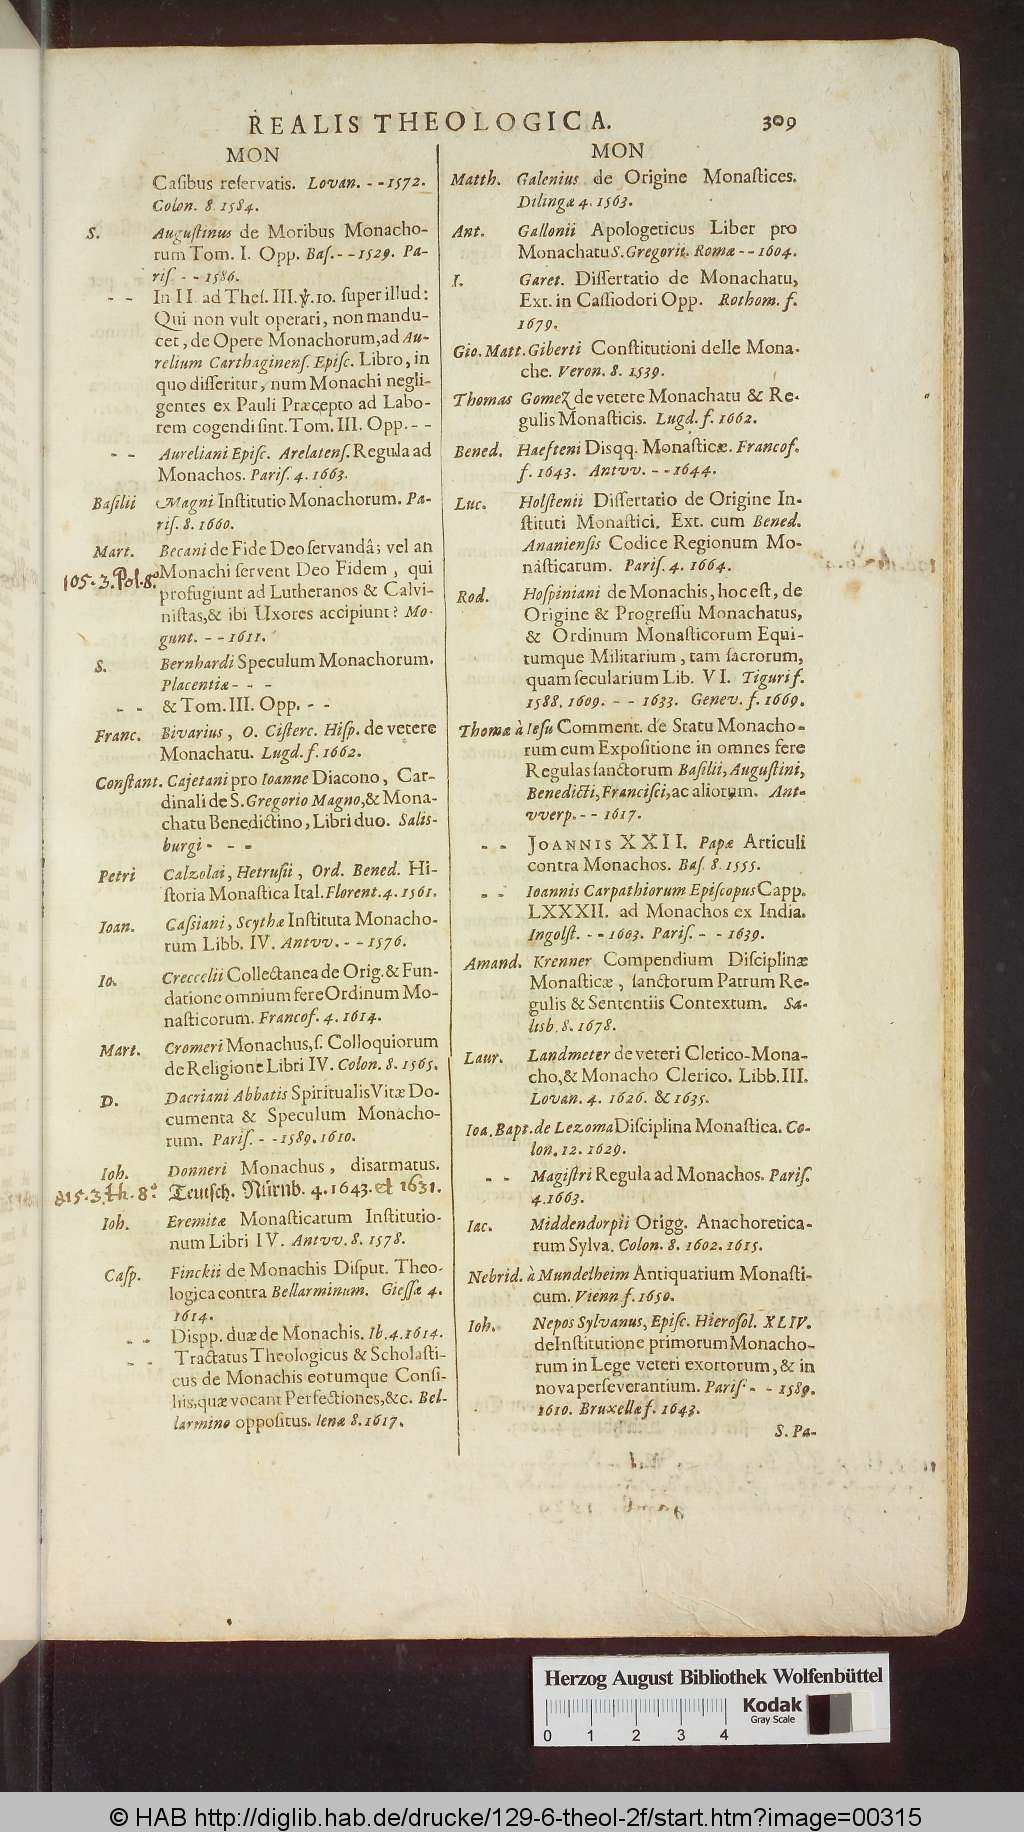 REALIS THEOLOGICA. 309
MON
Caſibus reſervatis. Lovan. - - 1572.
Colon. 8. 1584.
S. Auguſtinus de Moribus Monacho-
rum Tom. I. Opp. Baſ. - - 1529. Pa-
riſ. - - 1586.
- - In II. ad Theſ. III. ꝟ. 10. ſuper illud:
Qui non vult operari, non mandu-
cet, de Opere Monachorum, ad Au-
relium Carthaginenſ. Epiſc. Libro, in
quo diſſeritur, num Monachi negli-
gentes ex Pauli Præcepto ad Labo-
rem cogendi ſint. Tom. III. Opp. - -
- - Aureliani Epiſc. Arelatenſ. Regula ad
Monachos. Pariſ. 4. 1663.
Baſilii Magni Inſtitutio Monachorum. Pa-
riſ. 8. 1660.
Mart. Becani de Fide Deo ſervandâ; vel an
105. 3. Pol. 8º Monachi ſervent Deo Fidem, qui
profugiunt ad Lutheranos & Calvi-
niſtas, & ibi Uxores accipiunt? Mo-
gunt. - - 1611.
S. Bernhardi Speculum Monachorum.
Placentiæ - - -
- - & Tom. III. Opp. - -
Franc. Bivarius, O. Ciſterc. Hiſp. de vetere
Monachatu. Lugd. f. 1662.
Conſtant. Cajetani pro Ioanne Diacono, Car-
dinali de S. Gregorio Magno, & Mona-
chatu Benedictino, Libri duo. Salis-
burgi - - -
Petri Calzolai, Hetruſii, Ord. Bened. Hi-
ſtoria Monaſtica Ital. Florent. 4. 1561.
Ioan. Caſſiani, Scythæ Inſtituta Monacho-
rum Libb. IV. Antvv. - - 1576.
Io. Creccelii Collectanea de Orig. & Fun-
datione omnium fere Ordinum Mo-
naſticorum. Francof. 4. 1614.
Mart. Cromeri Monachus, ſ. Colloquiorum
de Religione Libri IV. Colon. 8. 1565.
D. Dacriani Abbatis Spiritualis Vitæ Do-
cumenta & Speculum Monacho-
rum. Pariſ. - - 1589. 1610.
Ioh. Donneri Monachus, disarmatus.
815. 3. th. 8º Teutſch. Nürnb. 4. 1643. et 1631.
Ioh. Eremitæ Monaſticarum Inſtitutio-
num Libri IV. Antvv. 8. 1578.
Caſp. Finckii de Monachis Diſput. Theo-
logica contra Bellarminum. Gieſſæ 4.
1614.
- - Diſpp. duæ de Monachis. Ib. 4. 1614.
- - Tractatus Theologicus & Scholaſti-
cus de Monachis eotumque Conſi-
liis, quæ vocant Perfectiones, &c. Bel-
larmino oppoſitus. Ienæ 8. 1617.
MON
Matth. Galenius de Origine Monaſtices.
Dilingæ 4. 1563.
Ant. Gallonii Apologeticus Liber pro
Monachatu S. Gregorii. Romæ - - 1604.
I. Garet. Diſſertatio de Monachatu,
Ext. in Caſſiodori Opp. Rothom. f.
1679.
Gio. Matt. Giberti Conſtitutioni delle Mona-
che. Veron. 8. 1539.
Thomas Gomez de vetere Monachatu & Re-
gulis Monaſticis. Lugd. f. 1662.
Bened. Haefteni Disqq. Monaſticæ. Francof.
f. 1643. Antvv. - - 1644.
Luc. Holſtenii Diſſertatio de Origine In-
ſtituti Monaſtici. Ext. cum Bened.
Ananienſis Codice Regionum Mo-
náſticarum. Pariſ. 4. 1664.
Rod. Hoſpiniani de Monachis, hoc eſt, de
Origine & Progreſſu Monachatus,
& Ordinum Monaſticorum Equi-
tumque Militarium, tam ſacrorum,
quam ſecularium Lib. VI. Tiguri f.
1588. 1609. - - 1633. Genev. f. 1669.
Thomæ à Ieſu Comment. de Statu Monacho-
rum cum Expoſitione in omnes fere
Regulas ſanctorum Baſilii, Auguſtini,
Benedicti, Franciſci, ac aliorum. Ant-
vverp. - - 1617.
- - JOANNIS XXII. Papæ Articuli
contra Monachos. Baſ. 8. 1555.
- - Ioannis Carpathiorum Epiſcopus Capp.
LXXXII. ad Monachos ex India.
Ingolſt. - - 1603. Pariſ. - - 1639.
Amand. Krenner Compendium Diſciplinæ
Monaſticæ, ſanctorum Patrum Re-
gulis & Sententiis Contextum. Sa-
lisb. 8. 1678.
Laur. Landmeter de veteri Clerico-Mona-
cho, & Monacho Clerico. Libb. III.
Lovan. 4. 1626. & 1635.
Ioa. Bapt. de Lezoma Diſciplina Monaſtica. Co-
lon. 12. 1629.
- - Magiſtri Regula ad Monachos. Pariſ.
4. 1663.
Iac. Middendorpii Origg. Anachoretica-
rum Sylva. Colon. 8. 1602. 1615.
Nebrid. à Mundelheim Antiquatium Monaſti-
cum. Vienn f. 1650.
Ioh. Nepos Sylvanus, Epiſc. Hieroſol. XLIV.
de Inſtitutione primorum Monacho-
rum in Lege veteri exortorum, & in
nova perſeverantium. Pariſ - - 1589.
1610. Bruxellæ f. 1643.
S. Pa-
Herzog August Bibliothek Wolfenbüttel
Kodak
Gray Scale
0 1 2 3 4
© HAB http://diglib.hab.de/drucke/129-6-theol-2f/start.htm?image=00315